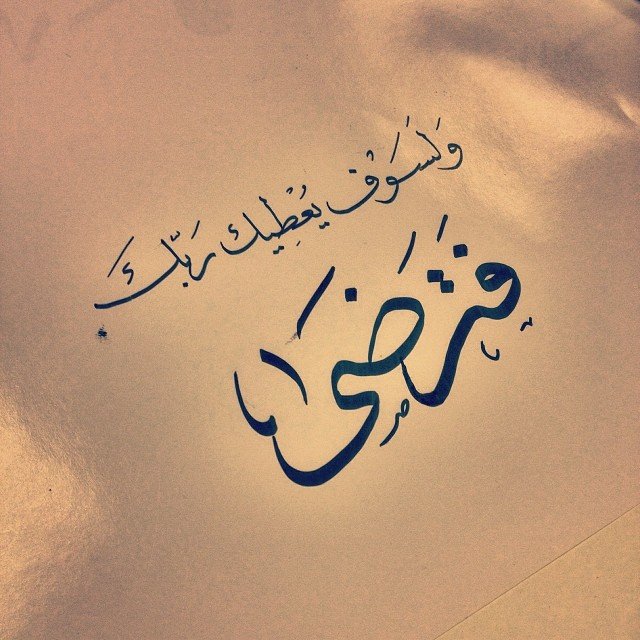 وَلَسَوْف يُعْطِيك رَبّكَ
فَتَرَضَى